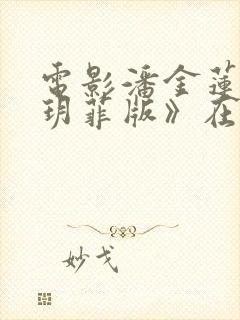 電影潘金蓮
玥菲版》在
妙戈